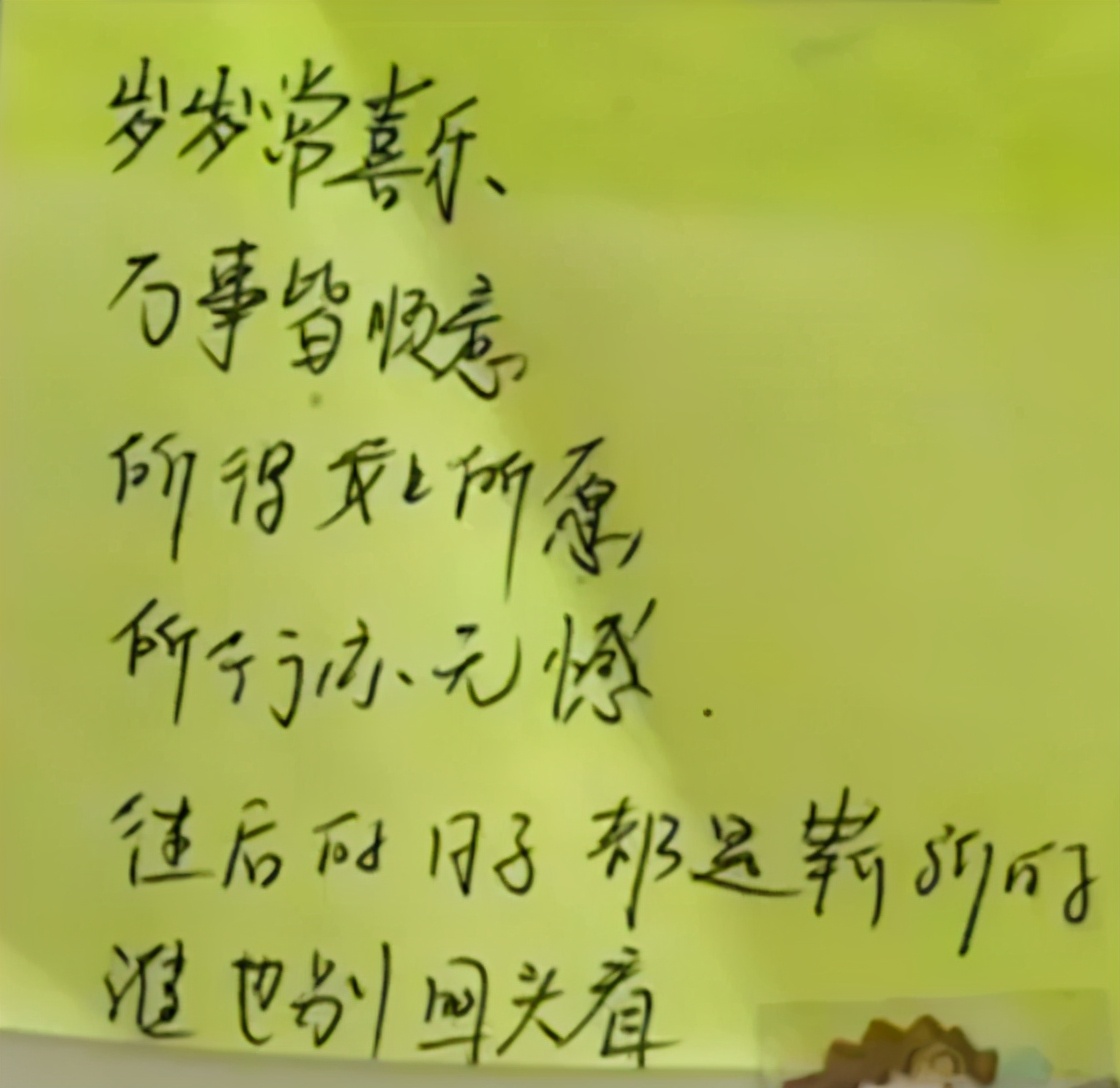 岁岁常喜乐
万事皆顺意
所得皆所愿
所行亦无憾.
往后的日子都是崭新的
谁也别回头看